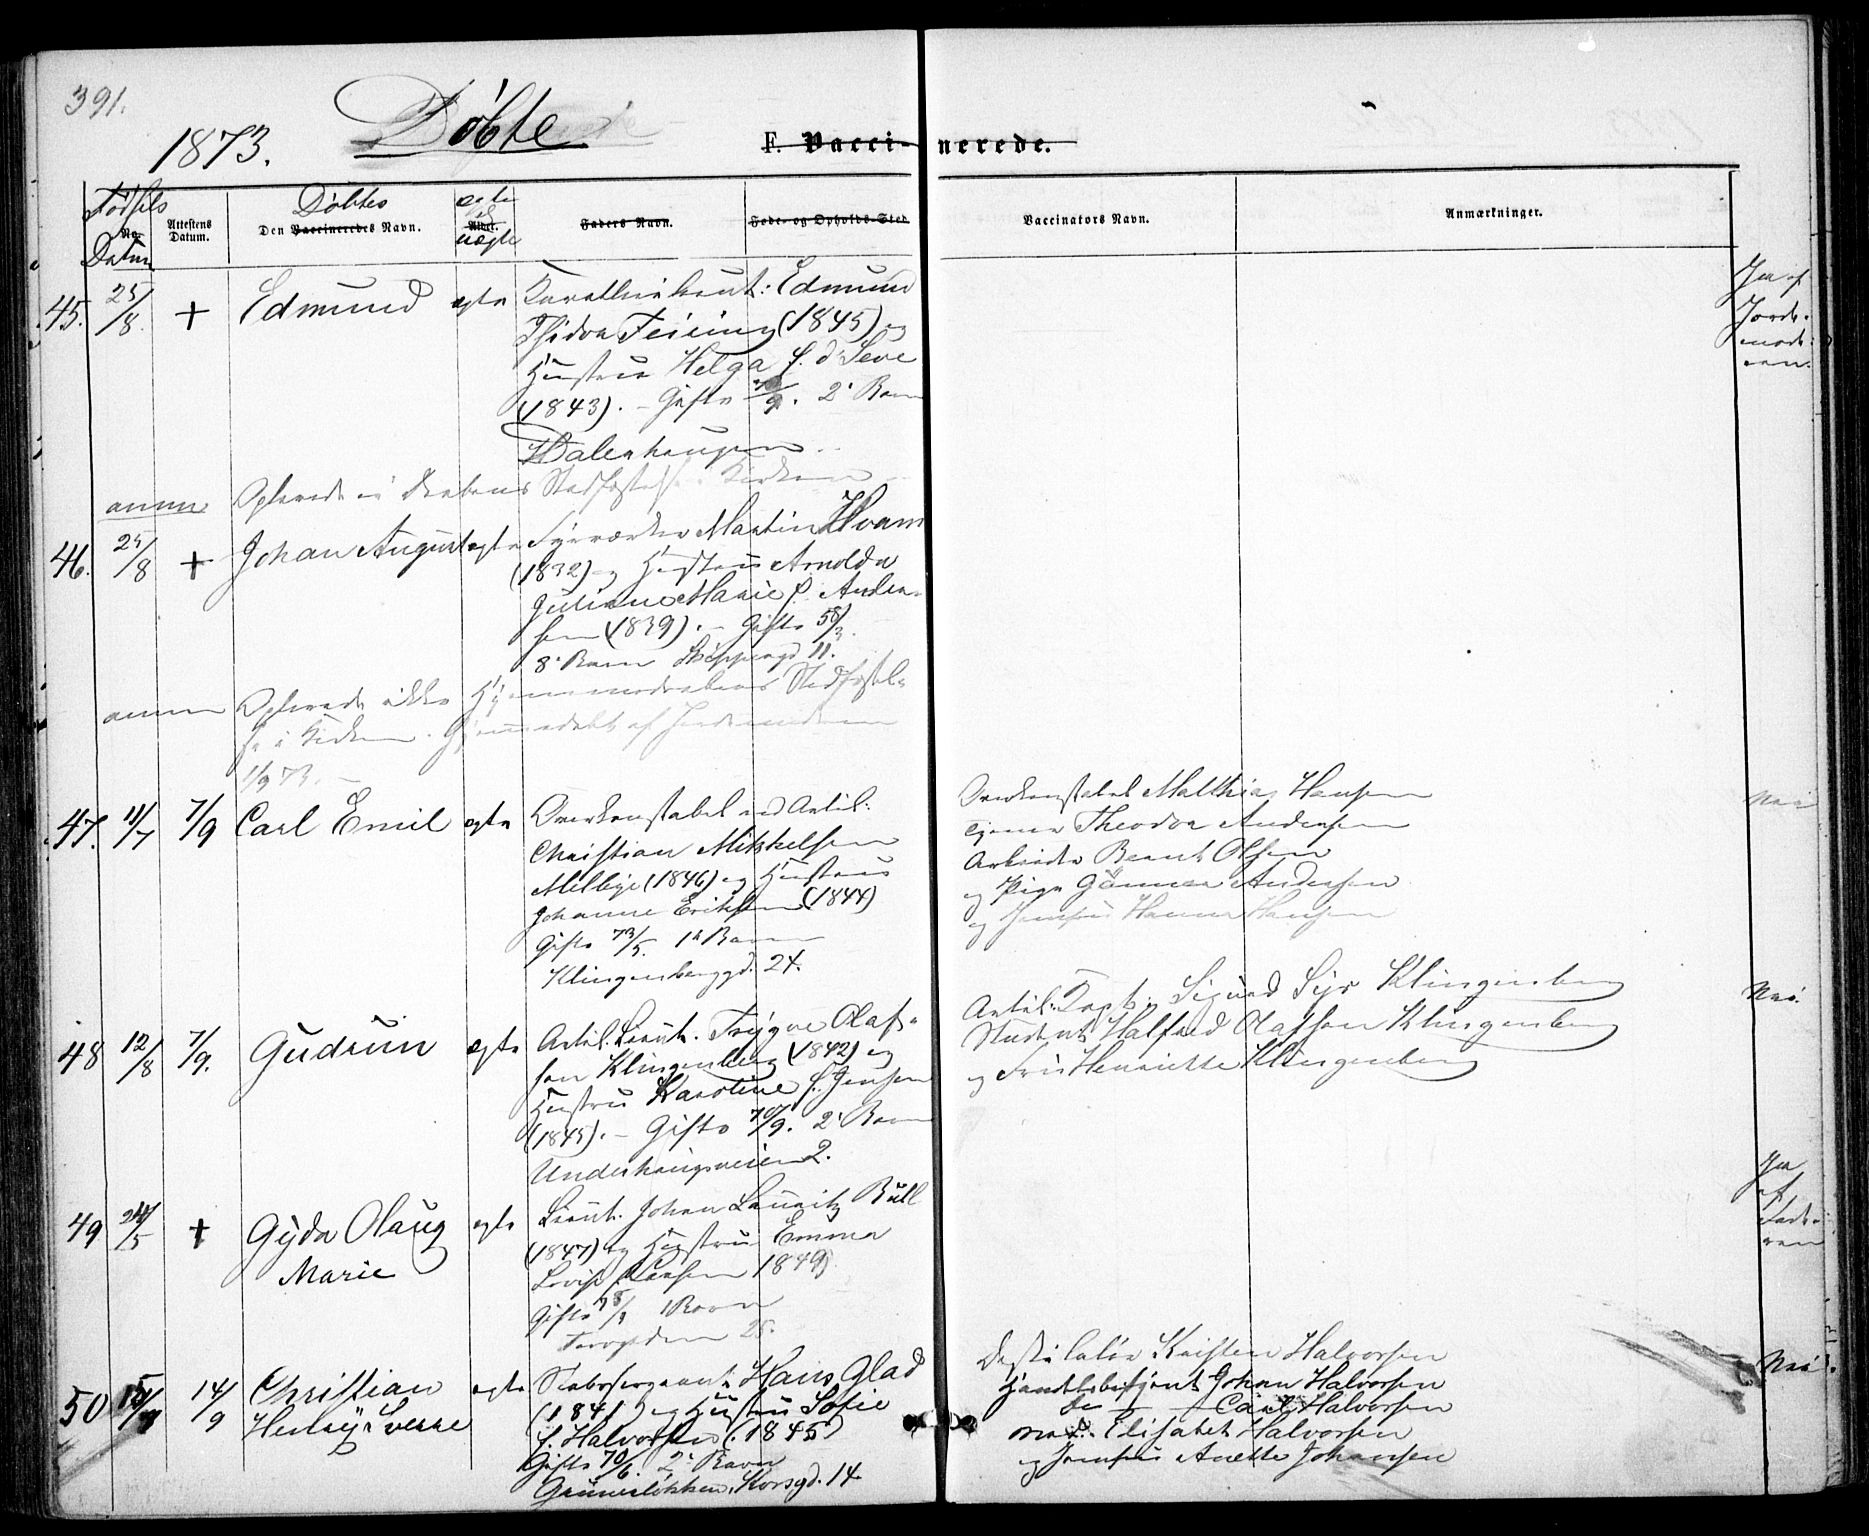 391.
1873. Døbte
F. Vaccinerede.
Fødsels
No.
Datum
Attestens
Datum.
Døbtes
Den Vaccineredes Navn.
ægte
Alder.
uægte
Faders Navn.
Føde- og Opholds-Sted
Vaccinators Navn.
Anmærkninger.
45. 25/8. + Edmund ægte
: Edmund
Feiring (1845) og
Hustru Helga f. d'Seve
(1843). – Gifte /9. 2' Barn
Dalenhaugen
anm
Kirken
Ja af
Jorde-
mode-
ren.
46. 25/8 + Johan August ægte
Martin Hvam
(1832) og Hustru Arnolda
Juliane Marie f. Ander-
sen (1839). – Gifte 58/3.
8' Barn Skippergd 11.
anm ikke Hjemmedaabens Stadfæstel-
se i Kirken. Hjemmedøbt af Jordemoderen
1/9 73. –
47. 11/7 7/9 Carl Emil ægte
Overkonstabel ved Artil:
Christian Mikkelsen
Melbye (1846) og Hustru
Johanne Eriksen (1844)
Gifte 73/5. 1' Barn
Klingenberggd. 24.
Overkonstabel Matthias Hansen
Tjener Theodor Andersen
Arbeider Bernt Olsen
og Pige Andersen
og Jomfru Hanna Hansen
Nei
48 12/8 7/9. Gudrun ægte
Artil. Lieut. Trygve Olaf-
sen Klingenberg (1842) og
Hustru Karoline f. Jensen
(1845). – Gifte 70/9. 2' Barn
Underhaugsveien 2.
Artil: Capt. Sigurd Klingenberg
Student Halfred Olafsen Klingenberg
og Frk Henriette Klingenberg
Nei.
49 24/5 + Gyda Olaug ægte
Marie
Lieut. Johan Lauritz Bull
(1847) og Hustru Emma
Lovise 1849)
Gifte 1 Barn
25.
Ja
af
Fade-
ren
50 14/9 Christian ægte
Henry Sverre
Hans Glad
(1841) og Hustru Sofie
f. Halvorsen (1845)
Gifte 70/6. 2' Barn
Grünerløkken, Korsgd. 14
Destillatør Kristen Halvorsen
Handelsbetjent Johan Halvorsen
do — Carl Halvorsen
Elisabet Halvorsen
og Jomfru Anette Johansen
Nei